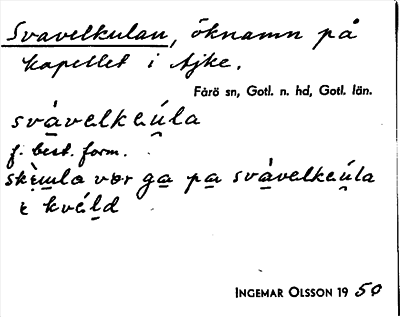 Svavelkulan, öknamn på
kapellet i Ajke.
Fårö sn, Gotl. n. hd, Gotl. län.
svàvelkeu̯la
f. best. form.
vær ga pa svàvelkeu̯la
kvéld
INGEMAR OLSSON 19 50